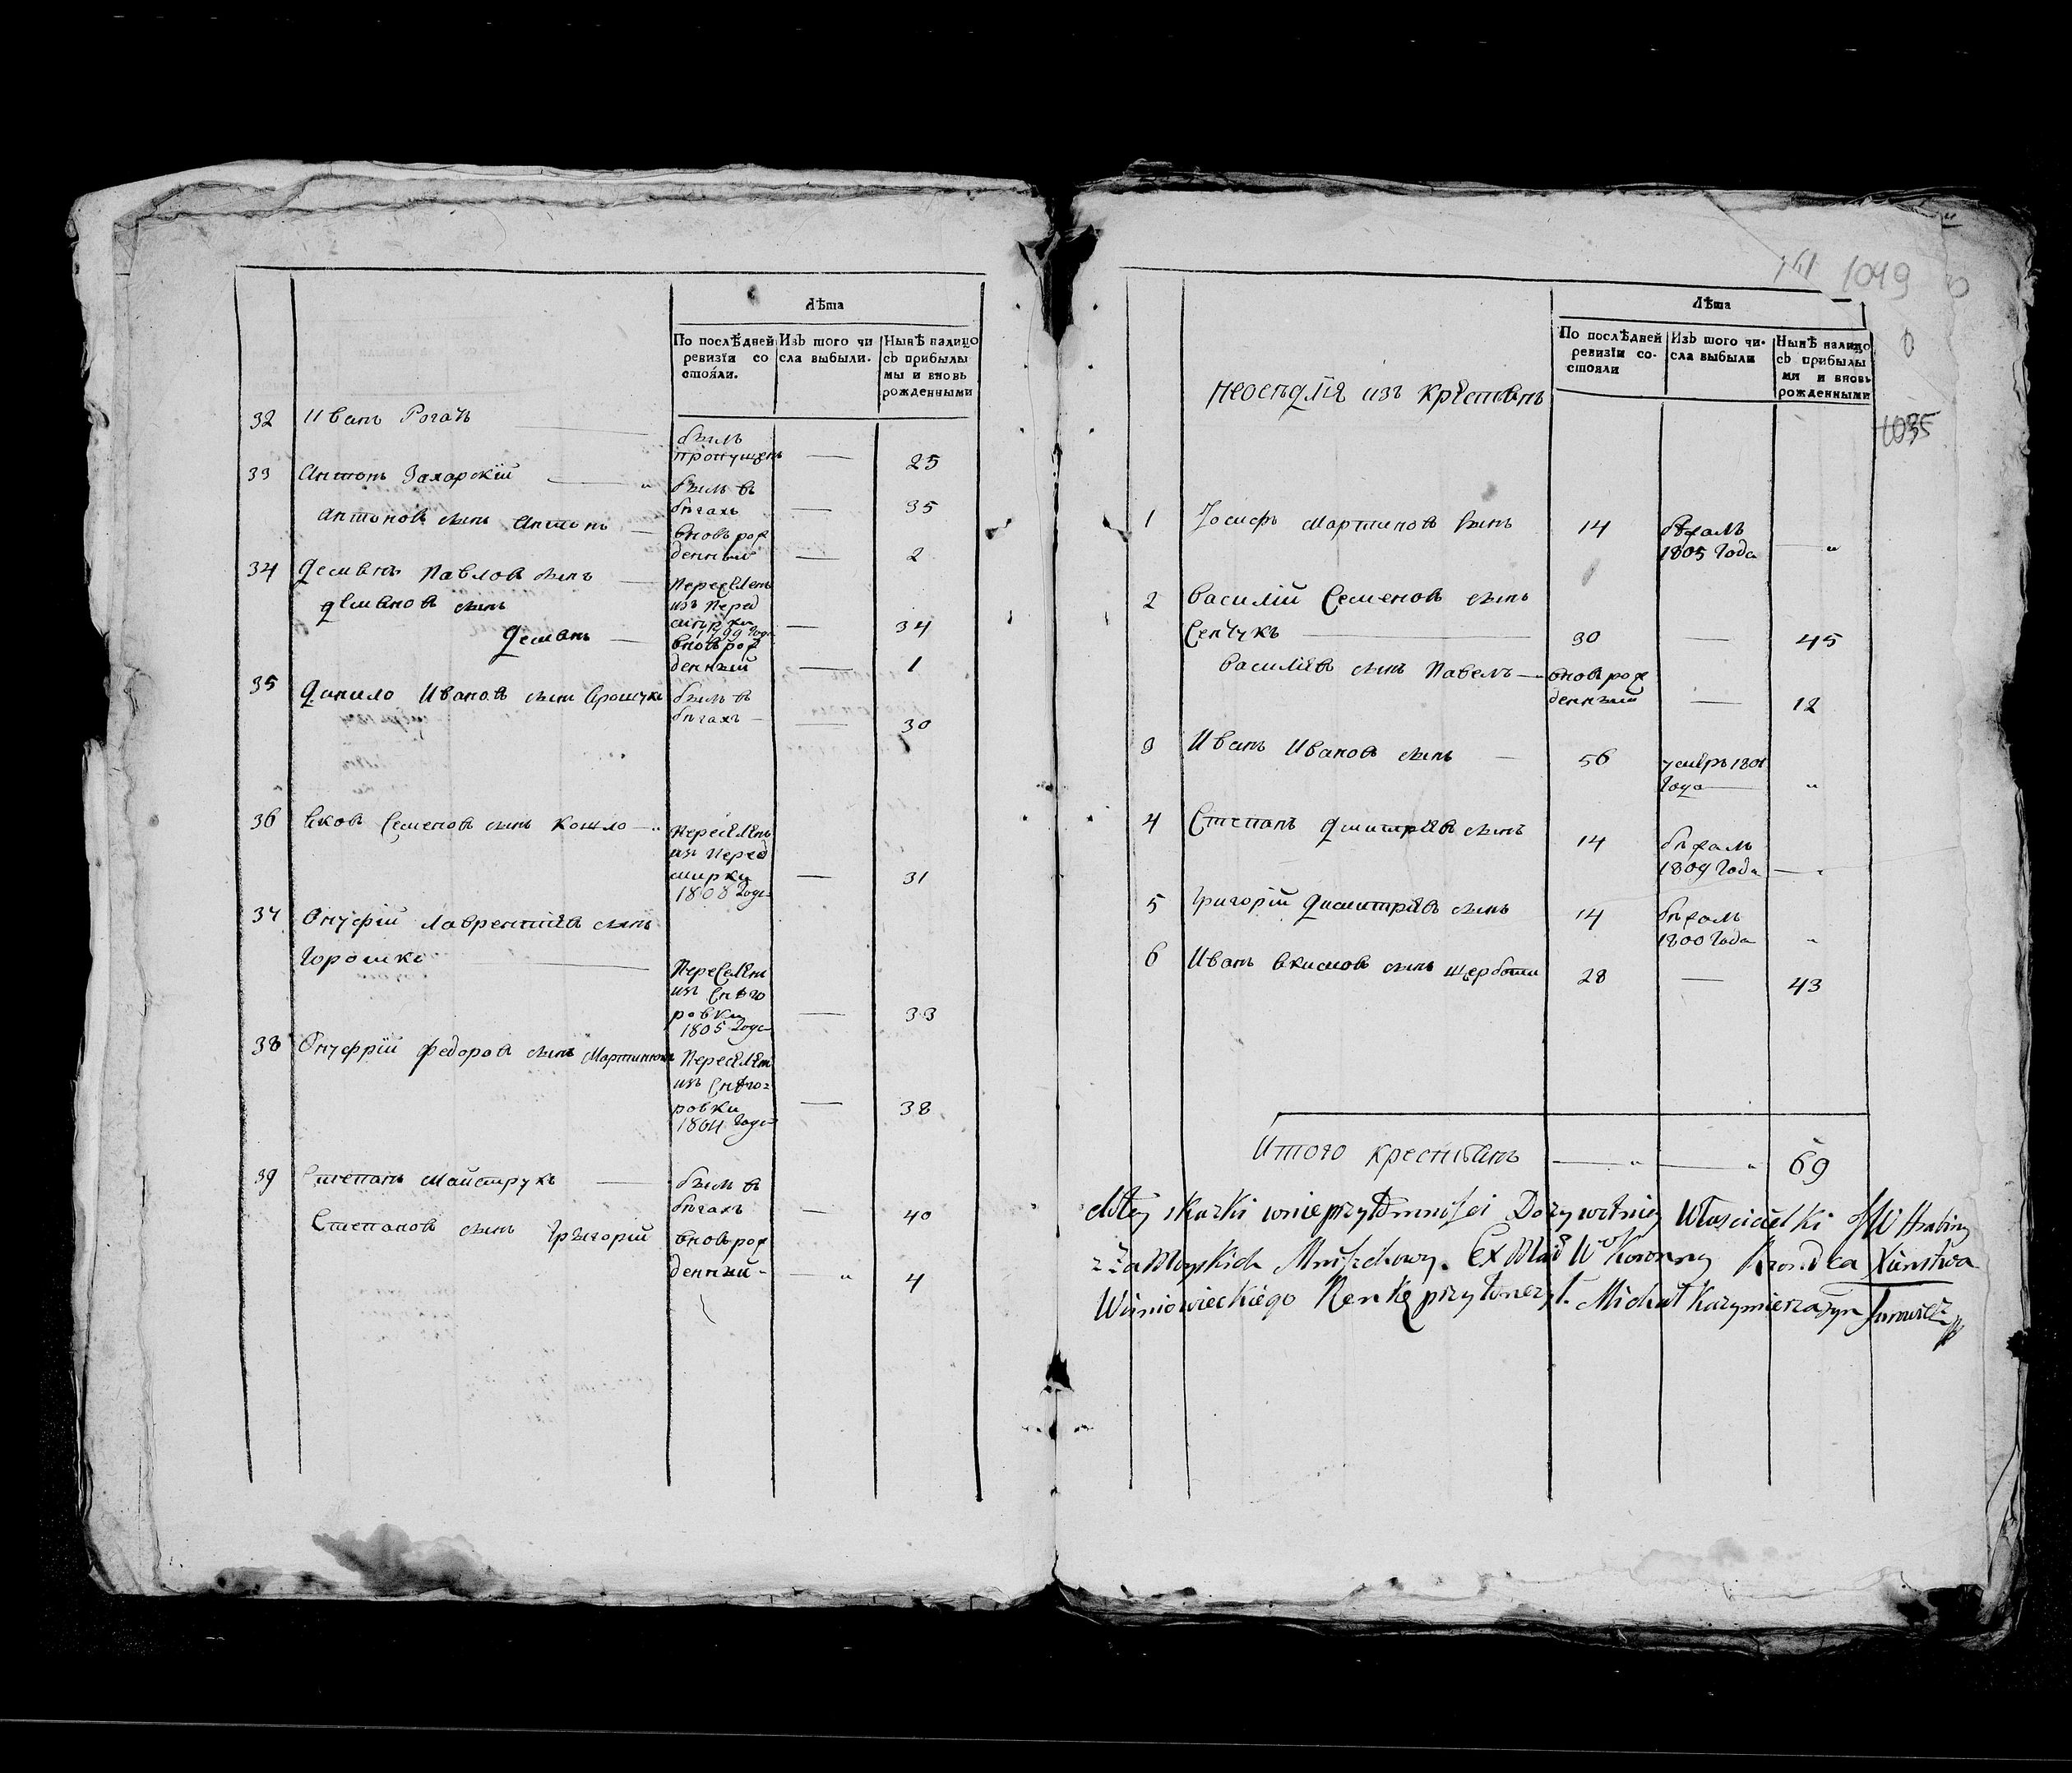 Лѣта
По послѣдней ревизїи состояли.
Изъ того числа выбыли.
Нынѣ налицо съ прибылыми и вновь рожденными
32 Иванъ Рогачъ — былъ пропущенъ — 25
33 Антонъ Захарскій — былъ в бѣгахъ — 35
Антонов сынъ Антонъ — вновь рожденный — 2
34 Демянъ Павлов сынъ — переселенъ из Перед мирки 1799 Года — 34
демянов сынъ Демянъ — вновь рожденный — 1
35 Данило Иванов сынъ — былъ в бѣгахъ — 30
36 Яков Семенов сынъ — переселенъ из Перед мирки 1808 Года — 31
37 Онуфрій Лаврентіев сынъ
Горошко — Переселен из Снѣгоровки 1805 Года — 33
38 Онуфрїй Федоров сынъ Мартинюкъ Переселен из Снѣгоровки 1804 Года — 38
39 Степанъ Майструкъ — былъ в бѣгахъ — 40
Степанов сынъ Григорій вновь рожденный — „ 4
161 1049
0
1035
Лѣта
По послѣдней ревизїи состояли
Изъ того числа выбыли
Нынѣ налицо съ прибылыми и вновь рожденными
из крестьянъ
1 Іосифъ Мартинов сынъ 14 бѣжалъ 1805 Года — „
2 Василій Семенов сынъ
Сенчукъ — 30 — 45
Василіев сынъ Павелъ — вновь рожденный — 12
3 Иванъ Иванов сынъ — 56 умеръ Года — „
4 Степанъ Дмитріев сынъ 14 бѣжалъ 1809 Года — „
5 Григорій Димитріев сынъ 14 бѣжалъ 1800 Года „
6 Иванъ сынъ 28 — 43
Итого крестьянъ — „ — „ 69
skazki wnieprzytomności Dożywotniey Właścicielki JW Hrabiny
z Zamoyskich Mniszchowy. Ex Koronny Rządca Xięstwa
Wiśniowieckiego Renkę przyłożył. Michał Kazymierza syn